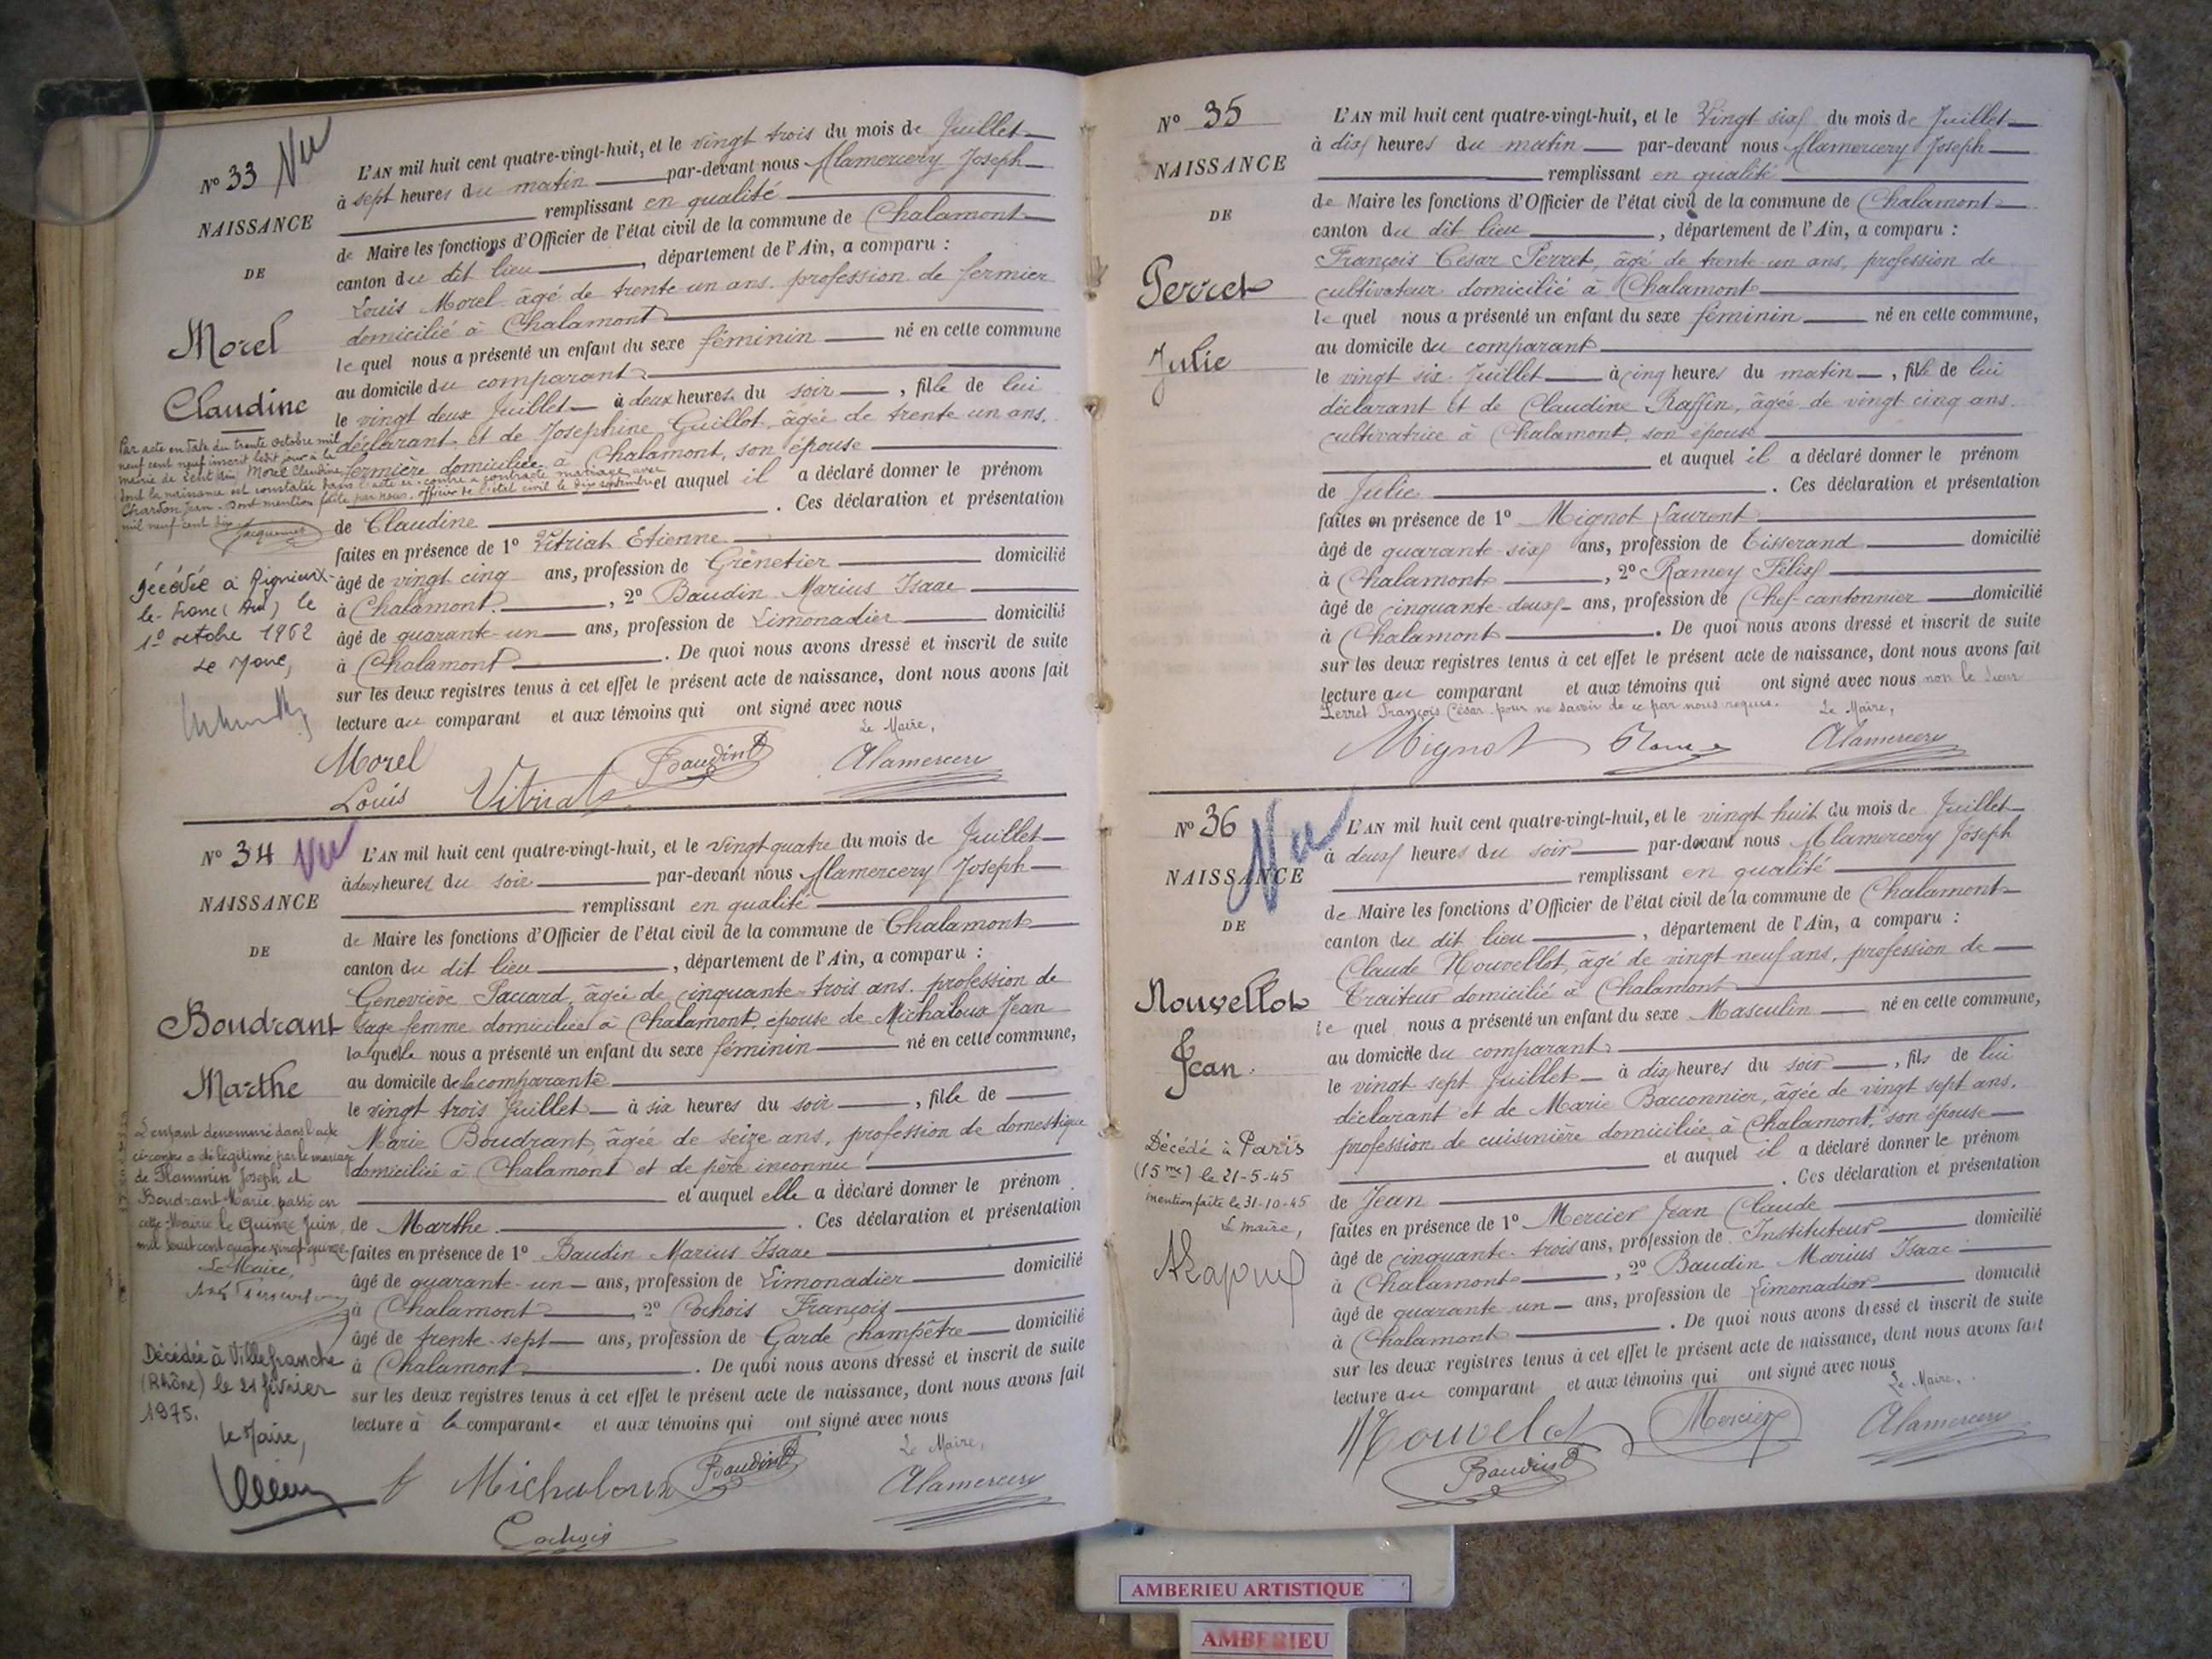 N° 33 Vu
NAISSANCE
DE
Morel
Claudine
L'AN mil huit cent quatre-vingt-huit, et le vingt trois du mois de Juillet
à sept heures du matin par-devant nous Alamercery Joseph
remplissant en qualité
de Maire les fonctions d'Officier de l'état civil de la commune de Chalamont
canton du dit lieu, département de l'Ain, a comparu :
Louis Morel âgé de trente un ans. profession de fermier
domicilié à Chalamont
le quel nous a présenté un enfant du sexe féminin né en cette commune
au domicile du comparant
le vingt deux Juillet à deux heures du soir, fille de lui
déclarant et de Josephine Guillot, âgée de trente un ans.
fermière domiciliée à Chalamont, son épouse
et auquel il a déclaré donner le prénom
de Claudine. Ces déclaration et présentation
faites en présence de 1° Vitriat Etienne
âgé de vingt cinq ans, profession de Grènetier domicilié
à Chalamont., 2° Baudin Marius Isaac
âgé de quarante-un ans, profession de Limonadier domicilié
à Chalamont. De quoi nous avons dressé et inscrit de suite
sur les deux registres tenus à cet effet le présent acte de naissance, dont nous avons fait
lecture au comparant et aux témoins qui ont signé avec nous
Le Maire,
Morel
Louis Vitriat Baudin Alamercery
Par acte en date du trente octobre mil
neuf cent neuf inscrit ledit jour à la
mairie de Morel Claudine
dont la naissance est constatée dans l'acte ci-contre a contracté mariage avec
Charton Jean. Dont mention faite par nous. officier de l'état civil le dix septembre
mil neuf cent dix
Jacquemet
Décédée à Rignieux-
le-Franc (Ain) le
1° octobre 1962
Le Maire,
N° 34 Vu
NAISSANCE
DE
Boudrant
Marthe
L'AN mil huit cent quatre-vingt-huit, et le vingt quatre du mois de Juillet
à deux heures du soir par-devant nous Alamercery Joseph
remplissant en qualité
de Maire les fonctions d'Officier de l'état civil de la commune de Chalamont
canton du dit lieu, département de l'Ain, a comparu :
Geneviève Paccard, âgée de cinquante-trois ans. profession de
sage femme domiciliée à Chalamont, épouse de Michaloux Jean
laquelle nous a présenté un enfant du sexe féminin né en cette commune,
au domicile de la comparante
le vingt trois Juillet à six heures du soir, fille de
Marie Boudrant, âgée de seize ans, profession de domestique
domiciliée à Chalamont et de père inconnu
et auquel elle a déclaré donner le prénom
de Marthe. Ces déclaration et présentation
faites en présence de 1° Baudin Marius Isaac
âgé de quarante-un ans, profession de Limonadier domicilié
à Chalamont, 2° Cochois François
âgé de trente-sept ans, profession de Garde Champêtre domicilié
à Chalamont. De quoi nous avons dressé et inscrit de suite
sur les deux registres tenus à cet effet le présent acte de naissance, dont nous avons fait
lecture à la comparante et aux témoins qui ont signé avec nous
Le Maire,
f Michaloux Baudin Alamercery
Cochois
L'enfant dénommé dans l'acte
ci-contre a été légitimé par le mariage
de Flammin Joseph et
Boudrant Marie passé en
cette Mairie le Quinze Juin
mil huit cent quatre vingt quinze
Le Maire,
Décédée à Villefranche
(Rhône) le 21 février
1975.
Le Maire,
N° 35
NAISSANCE
DE
Perret
Julie
L'AN mil huit cent quatre-vingt-huit, et le Vingt-six du mois de Juillet
à dix heures du matin par-devant nous Alamercery Joseph
remplissant en qualité
de Maire les fonctions d'Officier de l'état civil de la commune de Chalamont
canton du dit lieu, département de l'Ain, a comparu :
François César Perret, âgé de trente-un ans, profession de
cultivateur domicilié à Chalamont
le quel nous a présenté un enfant du sexe féminin né en cette commune,
au domicile du comparant
le vingt six Juillet à cinq heures du matin, fille de lui
déclarant et de Claudine Raffin, âgée de vingt cinq ans.
cultivatrice à Chalamont, son épouse
et auquel il a déclaré donner le prénom
de Julie. Ces déclaration et présentation
faites en présence de 1° Mignot Laurent
âgé de quarante-six ans, profession de Tisserand domicilié
à Chalamont, 2° Ramey Félix
âgé de cinquante-deux ans, profession de Chef-cantonnier domicilié
à Chalamont. De quoi nous avons dressé et inscrit de suite
sur les deux registres tenus à cet effet le présent acte de naissance, dont nous avons fait
lecture au comparant et aux témoins qui ont signé avec nous non le sieur
Perret François César pour ne savoir de ce par nous requis.
Le Maire,
Mignot Ramey Alamercery
N° 36 Vu
NAISSANCE
DE
Nouvellot
Jean.
L'AN mil huit cent quatre-vingt-huit, et le vingt huit du mois de Juillet
à deux heures du soir par-devant nous Alamercery Joseph
remplissant en qualité
de Maire les fonctions d'Officier de l'état civil de la commune de Chalamont
canton du dit lieu, département de l'Ain, a comparu :
Claude Nouvellot, âgé de vingt neuf ans, profession de
Traiteur domicilié à Chalamont
le quel nous a présenté un enfant du sexe Masculin né en cette commune,
au domicile du comparant
le vingt sept Juillet à dix heures du soir, fils de lui
déclarant et de Marie Bacconnier, âgée de vingt sept ans.
profession de cuisinière domiciliée à Chalamont, son épouse
et auquel il a déclaré donner le prénom
de Jean. Ces déclaration et présentation
faites en présence de 1° Mercier Jean Claude
âgé de cinquante-trois ans, profession de Instituteur domicilié
à Chalamont, 2° Baudin Marius Isaac
âgé de quarante un ans, profession de Limonadier domicilié
à Chalamont. De quoi nous avons dressé et inscrit de suite
sur les deux registres tenus à cet effet le présent acte de naissance, dont nous avons fait
lecture au comparant et aux témoins qui ont signé avec nous
Le Maire,
Nouvelot Mercier Alamercery
Baudin
Décédé à Paris
(15me) le 21-5-45
mention faite le 31-10-45
Le maire,
AMBERIEU ARTISTIQUE
AMBERIEU